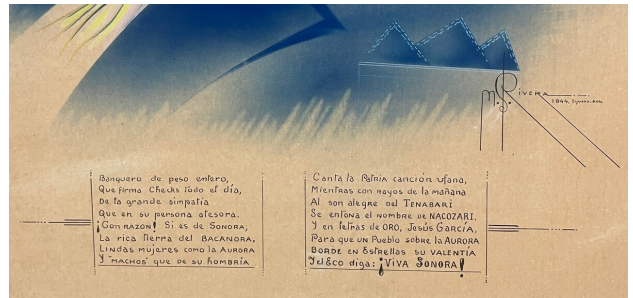 M. S. RIVERA
1944.
Banquero de peso entero,
Que firma Checks todo el día,
De la grande simpatía
Que en su persona atesora.
¡CON RAZON! Si es de SONORA;
La rica Tierra del BACANORA,
LINDAS mujeres como la AURORA
Y "MACHOS" que de su hombría
Canta la PATRIA canción ufana,
Mientras con rayos de la mañana
Al son alegre del TENABARI
Se entona el nombre de NACOZARI,
Y en letras de ORO, Jesús GARCÍA,
Para que un Pueblo sobre la AURORA
BORDE en EStrellas su VALENTÍA
Y el Eco diga: ¡VIVA SONORA!